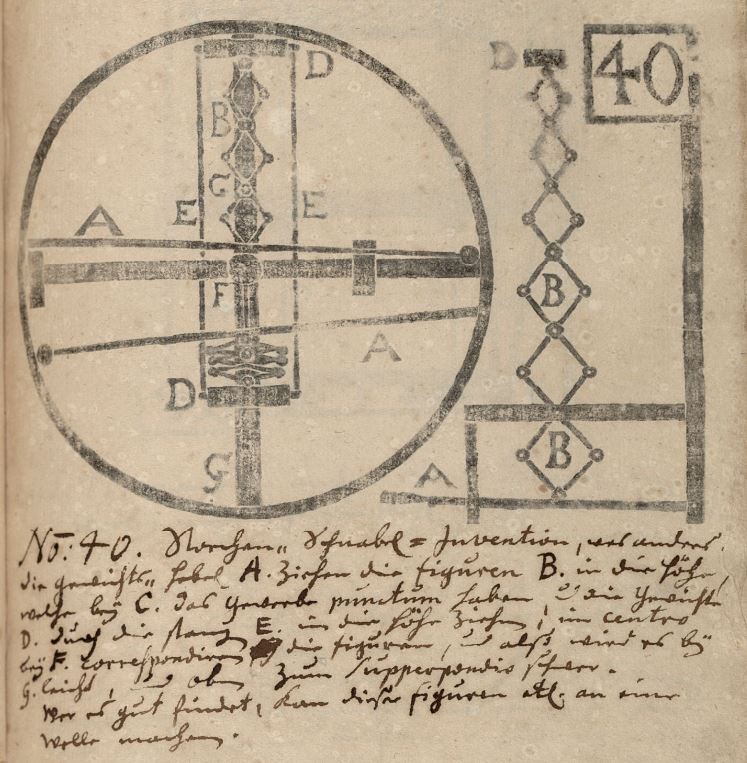 D
D
40
B
C
A
E
E
F
B
A
D
B
G
A
No: 40. Storchen„ Schnabel = Invention, was anders.
die gewichts„ hebel A. Ziehen die figuren B. in die höhe,
welche beÿ C. das gewerbe punctum haben u die gewichte
D. durch die stang E. in die höhe Ziehen, im centro
beÿ F. correspondiren die figuren, u alß wird es beÿ
G. leicht, u oben zum supperpondio schwer.
Wer es gut findet, kan diese figuren etl. an eine
welle machen.